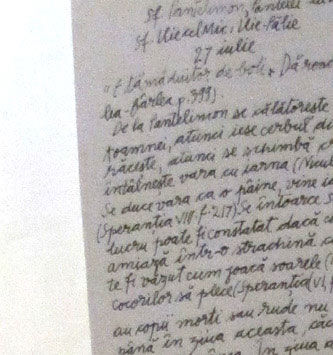 sf. Pantelimon, Pantelei
sf. Ilie cel Mic, Ilie-Pălie
27 iulie
"E tămăduitor de boli.
lea-Bârlea p. 399).
De la Pantelimon se călătorește
toamnei, atunci iese cerbul di
răcește, atunci se schimbă
întâlnește vara cu iarna
Se duce vara ca o pâine, vine
(Speranția VIII, f. 217). Se întoarce
lucru poate fi constatat dacă
amiază într-o strachină
te fi văzut cum joacă soarele
cocorilor să plece (Speranția VI, f
au copii morți sau rude nu
până în ziua aceasta,
în ziua